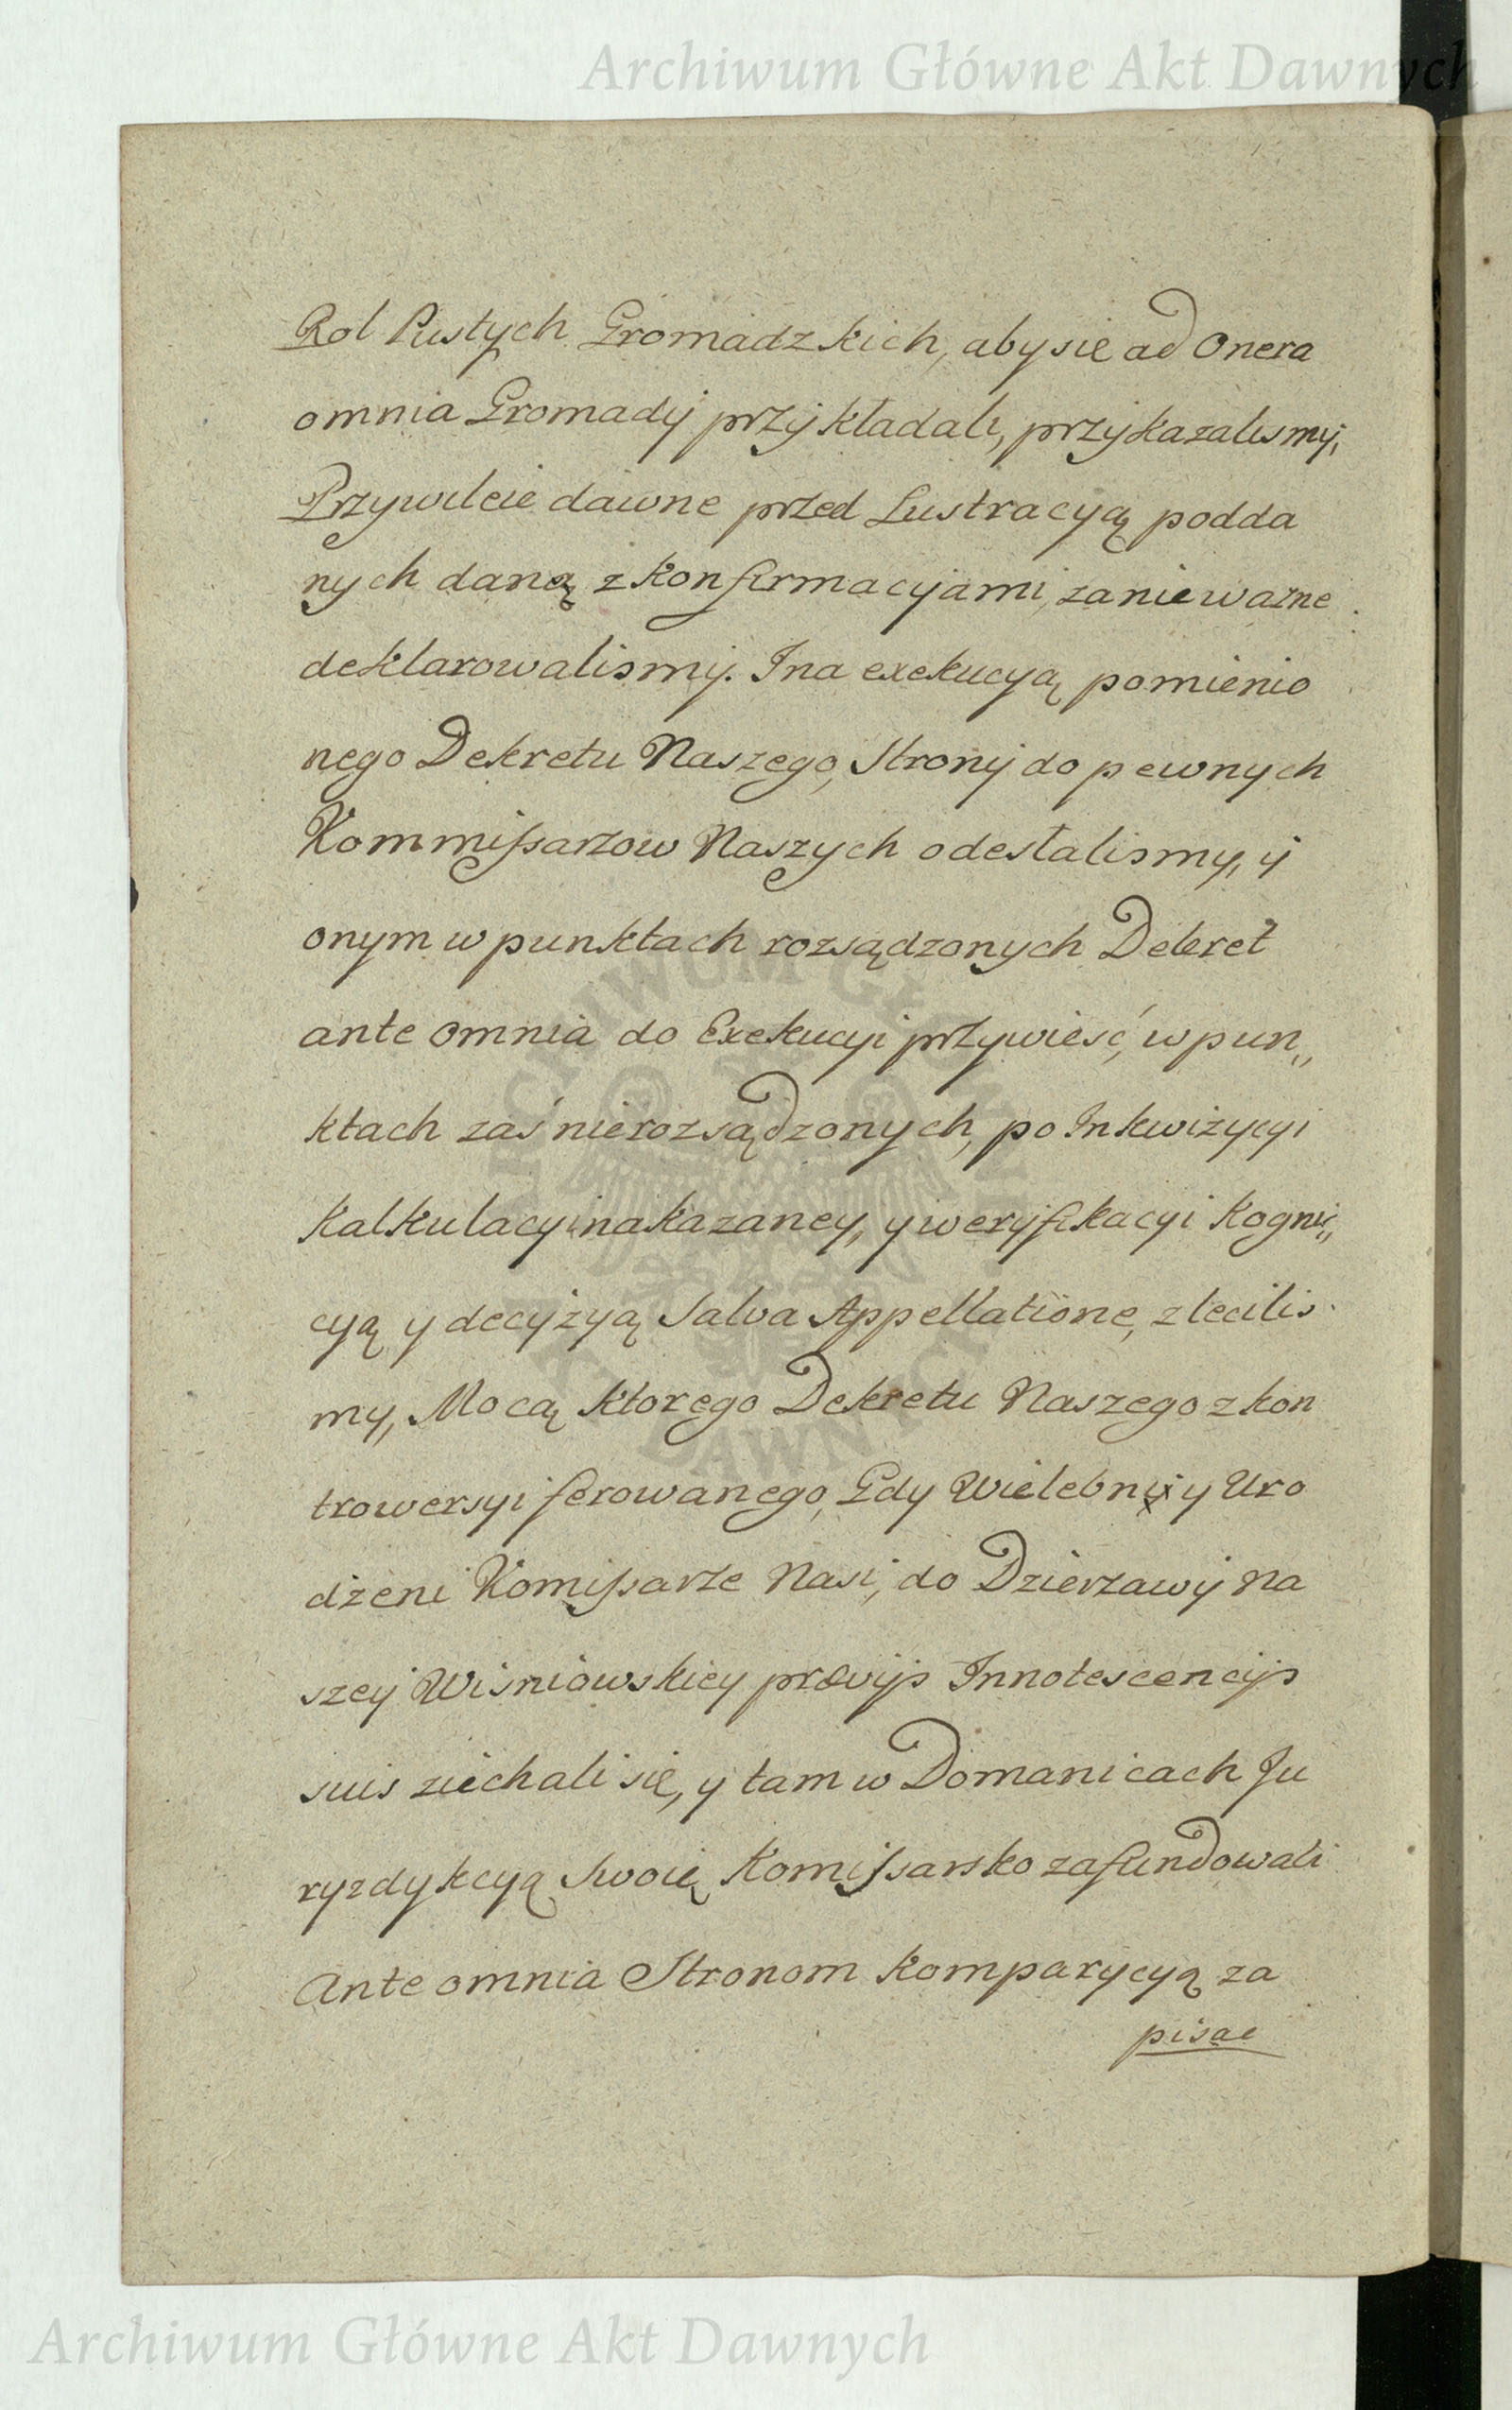 Archiwum Główne Akt Dawnych
Rol Pustych Gromadzkich, aby się ad Onera
omnia Gromadÿ przÿkładali, przÿkazalismÿ,
Przywileie dawne przed Lustracyą podda
nych daną z konfirmacyami, za nieważne
deklarowalismÿ. I na exekucyą pomienio
nego Dekretu Naszego, Stronÿ do pewnych
Kommissarzow Naszych odesłalismy, ÿ
onym w punktach rozsądzonych Dekret
ante omnia do Exekucyi przywieść, w pun„
ktach zaś nierozsądzonych, po Inkwizycyi
Kalkulacyi nakazaney, y weryfikacyi Kogni„
cyą y decyzyą Salva Appellatione, zlecilis
my, Mocą ktorego Dekretu Naszego z kon
trowersyi ferowanego, Gdy Wielebni y Uro
dzeni Komissarze Nasi, do Dzierzawÿ Na
szeÿ Wisniowskiey prævÿs Innotescencÿs
suis ziechali się, y tam w Domanicach Ju
ryzdykcyą Swoię Komissarsko zafundowali
Ante omnia Stronom Komparycyą za
pisac
ARCHIWUM GŁÓWNE AKT DAWNYCH
Archiwum Główne Akt Dawnych